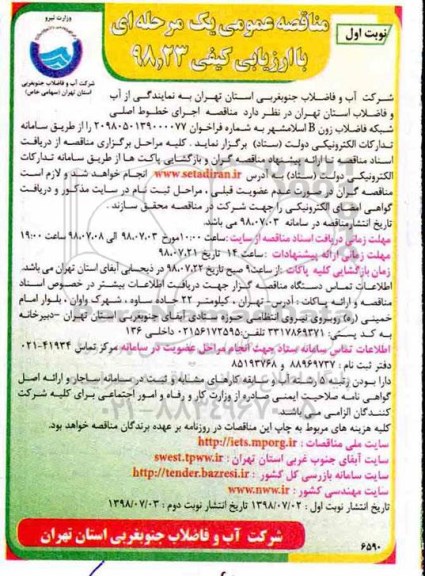 وزارت نیرو
شرکت آب و فاضلاب جنوبغربی
استان تهران (سهامی خاص)
نوبت اول
مناقصه عمومی یک مرحله ای
با ارزیابی کیفی ۹۸,۲۳
شرکت آب و فاضلاب جنوبغربی استان تهران به نمایندگی از آب
و فاضلاب استان تهران در نظر دارد مناقصه اجرای خطوط اصلی
شبکه فاضلاب زون B اسلامشهر به شماره فراخوان ۲۰۹۸۰۵۰۱۳۹۰۰۰۰۷۷ را از طریق سامانه
تدارکات الکترونیکی دولت (ستاد) برگزار نماید. کلیه مراحل برگزاری مناقصه از دریافت
اسناد مناقصه تا ارائه پیشنهاد مناقصه گران و بازگشایی پاکت ها از طریق سامانه تدارکات
الکترونیکی دولت (ستاد) به آدرس www.setadiran.ir انجام خواهد شد و لازم است
مناقصه گران در صورت عدم عضویت قبلی، مراحل ثبت نام در سایت مذکور و دریافت
گواهی امضای الکترونیکی را جهت شرکت در مناقصه محقق سازند.
تاریخ انتشار مناقصه در سامانه ۹۸.۰۷.۰۳ می باشد.
مهلت زمانی دریافت اسناد مناقصه از سایت: ساعت ۱۰:۰۰ مورخ ۹۸.۰۷.۰۳ الی ۹۸.۰۷.۰۸ ساعت ۱۹:۰۰
مهلت زمانی ارائه پیشنهادات: ساعت ۱۴ تاریخ ۹۸.۰۷.۲۱
زمان بازگشایی کلیه پاکات: از ساعت ۹ صبح تاریخ ۹۸.۰۷.۲۲ در ذیحسابی آبفای استان تهران می باشد.
اطلاعات تماس دستگاه مناقصه گزار جهت دریافت اطلاعات بیشتر در خصوص اسناد
مناقصه و ارائه پاکات: آدرس تهران، کیلومتر ۲۲ جاده ساوه، شهرک واوان، بلوار امام
خمینی (ره) روبروی نیروی انتظامی حوزه ستادی آبفای جنوبغربی استان تهران - دبیرخانه
به کد پستی: ۳۳۱۷۸۶۹۳۷۱ تلفن: ۰۲۱۵۶۱۷۲۵۹۵ داخلی ۱۳۶
اطلاعات تماس سامانه ستاد جهت انجام مراحل عضویت در سامانه مرکز تماس ۴۱۹۳۴-۰۲۱
دفتر ثبت نام: ۸۸۹۶۹۷۳۷ و ۸۵۱۹۳۷۶۸
دارا بودن رتبه ۵ رشته آب و سابقه کارهای مشابه و ثبت در سامانه ساجار و ارائه اصل
گواهی نامه صلاحیت ایمنی صادره از وزارت کار و رفاه و امور اجتماعی برای کلیه شرکت
کنندگان الزامی می باشد.
کلیه هزینه های مربوط به چاپ این مناقصات در روزنامه بر عهده برندگان مناقصه خواهد بود.
سایت ملی مناقصات: http://iets.mporg.ir
سایت آبفای جنوب غربی استان تهران: swest.tpww.ir
سایت سامانه بازرسی کل کشور: http://tender.bazresi.ir
سایت مهندسی کشور: www.nww.ir
تاریخ انتشار نوبت اول: ۱۳۹۸/۰۷/۰۲ تاریخ انتشار نوبت دوم: ۱۳۹۸/۰۷/۰۳
شرکت آب و فاضلاب جنوبغربی استان تهران
۶۵۹۰